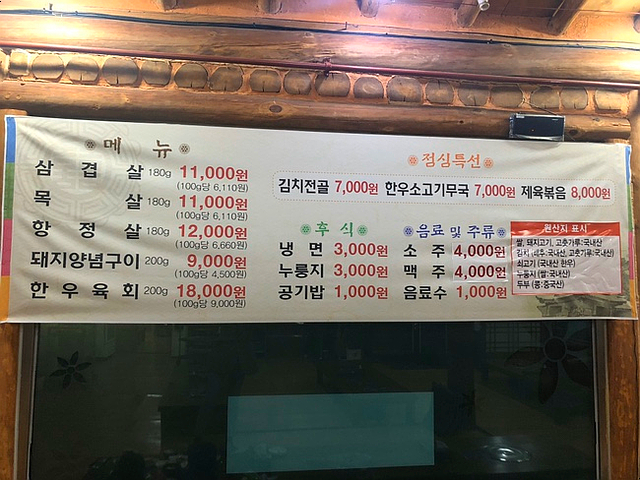 메 뉴
삼 겹 살 180g 11,000원
(100g당 6,110원)
목 살 180g 11,000원
(100g당 6,110원)
항 정 살 180g 12,000원
(100g당 6,660원)
돼지양념구이 200g 9,000원
(100g당 4,500원)
한 우 육 회 200g 18,000원
(100g당 9,000원)
점심특선
김치전골 7,000원 한우소고기무국 7,000원 제육볶음 8,000원
후 식
냉 면 3,000원
누룽지 3,000원
공기밥 1,000원
음료 및 주류
소 주 4,000원
맥 주 4,000원
음료수 1,000원
원산지 표시
쌀, 돼지고기, 고춧가루:국내산
김치 (배추:국내산, 고춧가루:국내산)
쇠고기 (국내산 한우)
누룽지 (쌀:국내산)
두부 (콩:중국산)